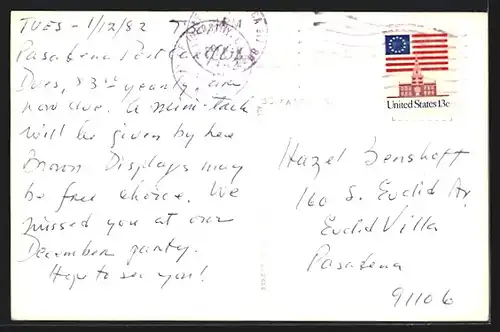 TUES - 1/12/82
Pasadena Postcard
Dues, $3 yearly, are
now due. A mini-talk
will be given by Lee
Brown. Displays may
be free choice. We
missed you at our
December party.
Hope to see you!
United States 13c
Hazel Benshoff
160 S. Euclid Av.
Euclid Villa
Pasadena
91106